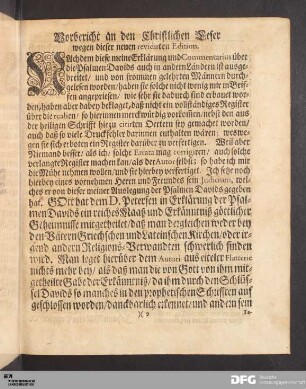 Vorbericht an den Christlichen Leser
wegen dieser neuen revidirten Edition.
NAchdem diese meine Erklärung und Commentarius über
die Psalmen Davids auch in andern Ländern ist ausge-
breitet / und von frommen gelehrten Männern durch-
gelesen worden / haben sie solche nicht wenig mir in Brief-
fen angepriesen / wie sehr sie dadurch sind erbauet wor-
den / haben aber dabey beklaget / daß nicht ein vollständiges Register
über die realien / so hierinnen merckwürdig vorkommen / nebst den aus
der heiligen Schrifft hiezu citirten Oertern sey gemachet worden /
auch daß so viele Druckfehler darinnen enthalten wären; wes-
wegen sie sich erboten ein Register darüber zu verfertigen. Weil aber
Niemand besser / als ich / solche Errata mag corrigiren / auch solche
verlangte Register machen kan / als der Autor selbst; so habe ich mir
die Mühe nehmen wollen / und sie hierbey verfertiget. Ich setze noch
hierbey eines vornehmen Herrn und Freundes sein Judicium, wel-
ches er von dieser meiner Auslegung der Psalmen Davids gegeben
hat. GOtt hat dem D. Petersen in Erklärung der Psal-
men Davids ein reiches Maaß und Erkänntniß göttlicher
Geheimnisse mitgetheilet / daß man dergleichen weder bey
den Vätern Griechschen und Lateinschen Kirchen / oder ir-
gend andern Religions-Verwandten schwerlich finden
wird. Man leget hierüber dem Autori aus eiteler Flatterie
nichts mehr bey / als daß man die von Gott von ihm mit-
getheilte Gabe der Erkänntniß / da ihm durch den Schlüs-
sel Davids so manches in den prophetischen Schrifften auf-
geschlossen worden / danckbarlich erkennet / und andern sein
)( 2
DFG